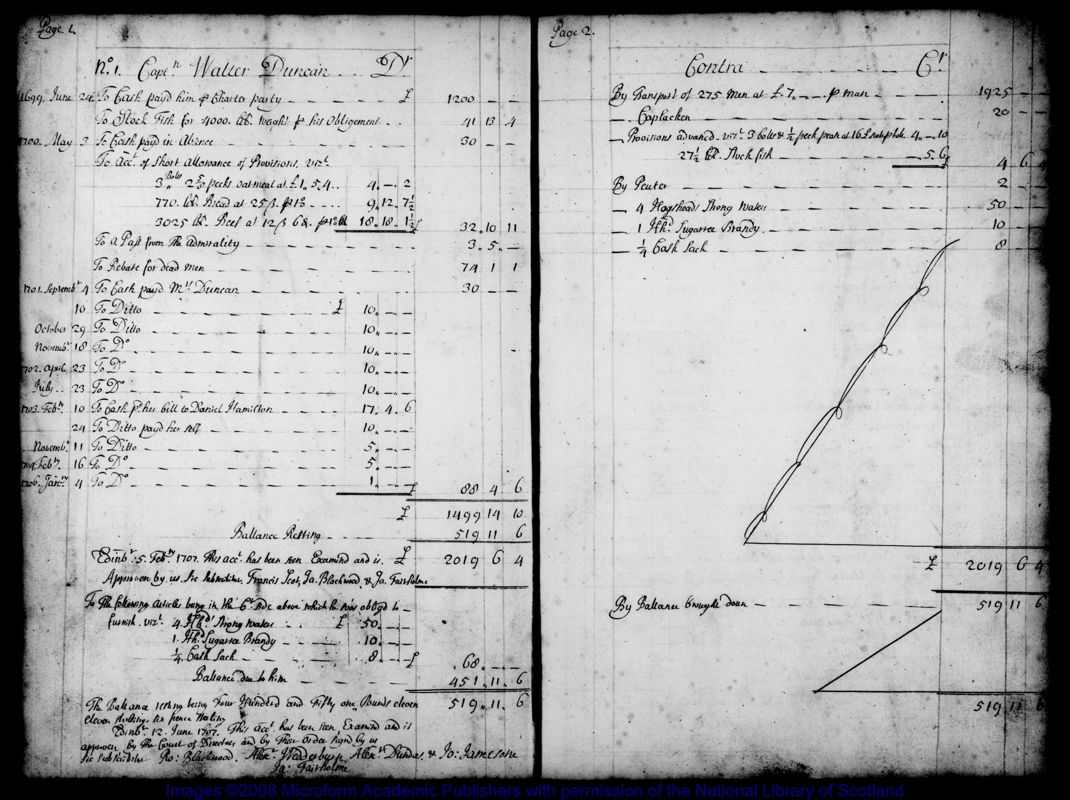 Page 1.
No. 1. Captn Walter Duncan Dr
1699 June 24 To Cash payd him p Charter party £ 1200 - -
To Stock Fish for 4000 lb. weight p his Obligement 41 13 4
1700 May 3 To Cash payd in Absence 30 - -
To Acct of Short Allowance of Provisions, vizt.
3 Bolls 2 pecks oatmeal at £1,, 5,, 4 4 - 2
770 lb. Bread at 25 ß 9,, 12,, 7½
3025 lb. Beef at 12 ß 6d 18,, 18,, 1½ £ 32,, 10 11
To a Pass from the Admirality 3,, 5,, -
To Rebate for dead men 74 1 1
1701 Septembr 4 To Cash payd Mrs Duncan 30 - -
10 To Ditto £ 10,, - -
October 29 To Ditto 10,, - -
Novembr 18 To Do 10,, - -
1702 April 23 To Do 10,, - -
July 23 To Do 10,, - -
1703 Febry 10 To Cash pd her bill to Daniel Hamilton 17,, 4 6
24 To Ditto payd her self 10,, - -
Novembr 11 To Ditto 5,, - -
1704 Febry 16 To Do 5,, - -
1706 Janry 4 To Do 1,, - - £ 88 4 6
£ 1499 14 10
Ballance Resting 519 11 6
Edinbr 5 Febry 1707. This acct has been seen Examind and is £ 2019 6 4
Approven by us. Sic Subscribitur Francis Scot, Ja. Blackwood, & Ja. Fairholme
To The following Articles being in the Cr side above which he was obligd to
furnish vizt 4 Hhds Strong Water £ 50,, - -
1 Hhd Sugarree Brandy 10,, - -
¼ Cask Sack 8,, - - £ 68,, - -
Ballance due to him 451,, 11,, 6
The Ballance resting being Four Hundred and Fifty one Pounds eleven 519,, 11,, 6
eleven shilling, six pence sterling
Edinbr 12 June 1707. This acct has been seen, Examind and is
approven by the Court of Directors, and by their Order signd by us
Sic Subscribitur Ro: Blackwood, Alexr Wedderburn, Alexr Dundas, & Jo: Jameson
Ja: Fairholme
Page 2.
Contra Cr
By Transport of 275 Men at £7,, p man 1925 - -
Coplacken 20 - -
Provisions advanced vizt 3 bolls & ½ peck pease at 16 £ 4,, - 10
27½ lb. Stock fish - 5 6 4 6 4
By Peuter 2 - -
4 Hogsheads Strong Water 50 - -
1 Hhd. Sugarree Brandy 10 - -
¼ Cask Sack 8 - -
£ 2019 6 4
By Ballance brought down 519 11 6
519 11 6
Images ©2008 Microform Academic Publishers with permission of the National Library of Scotland